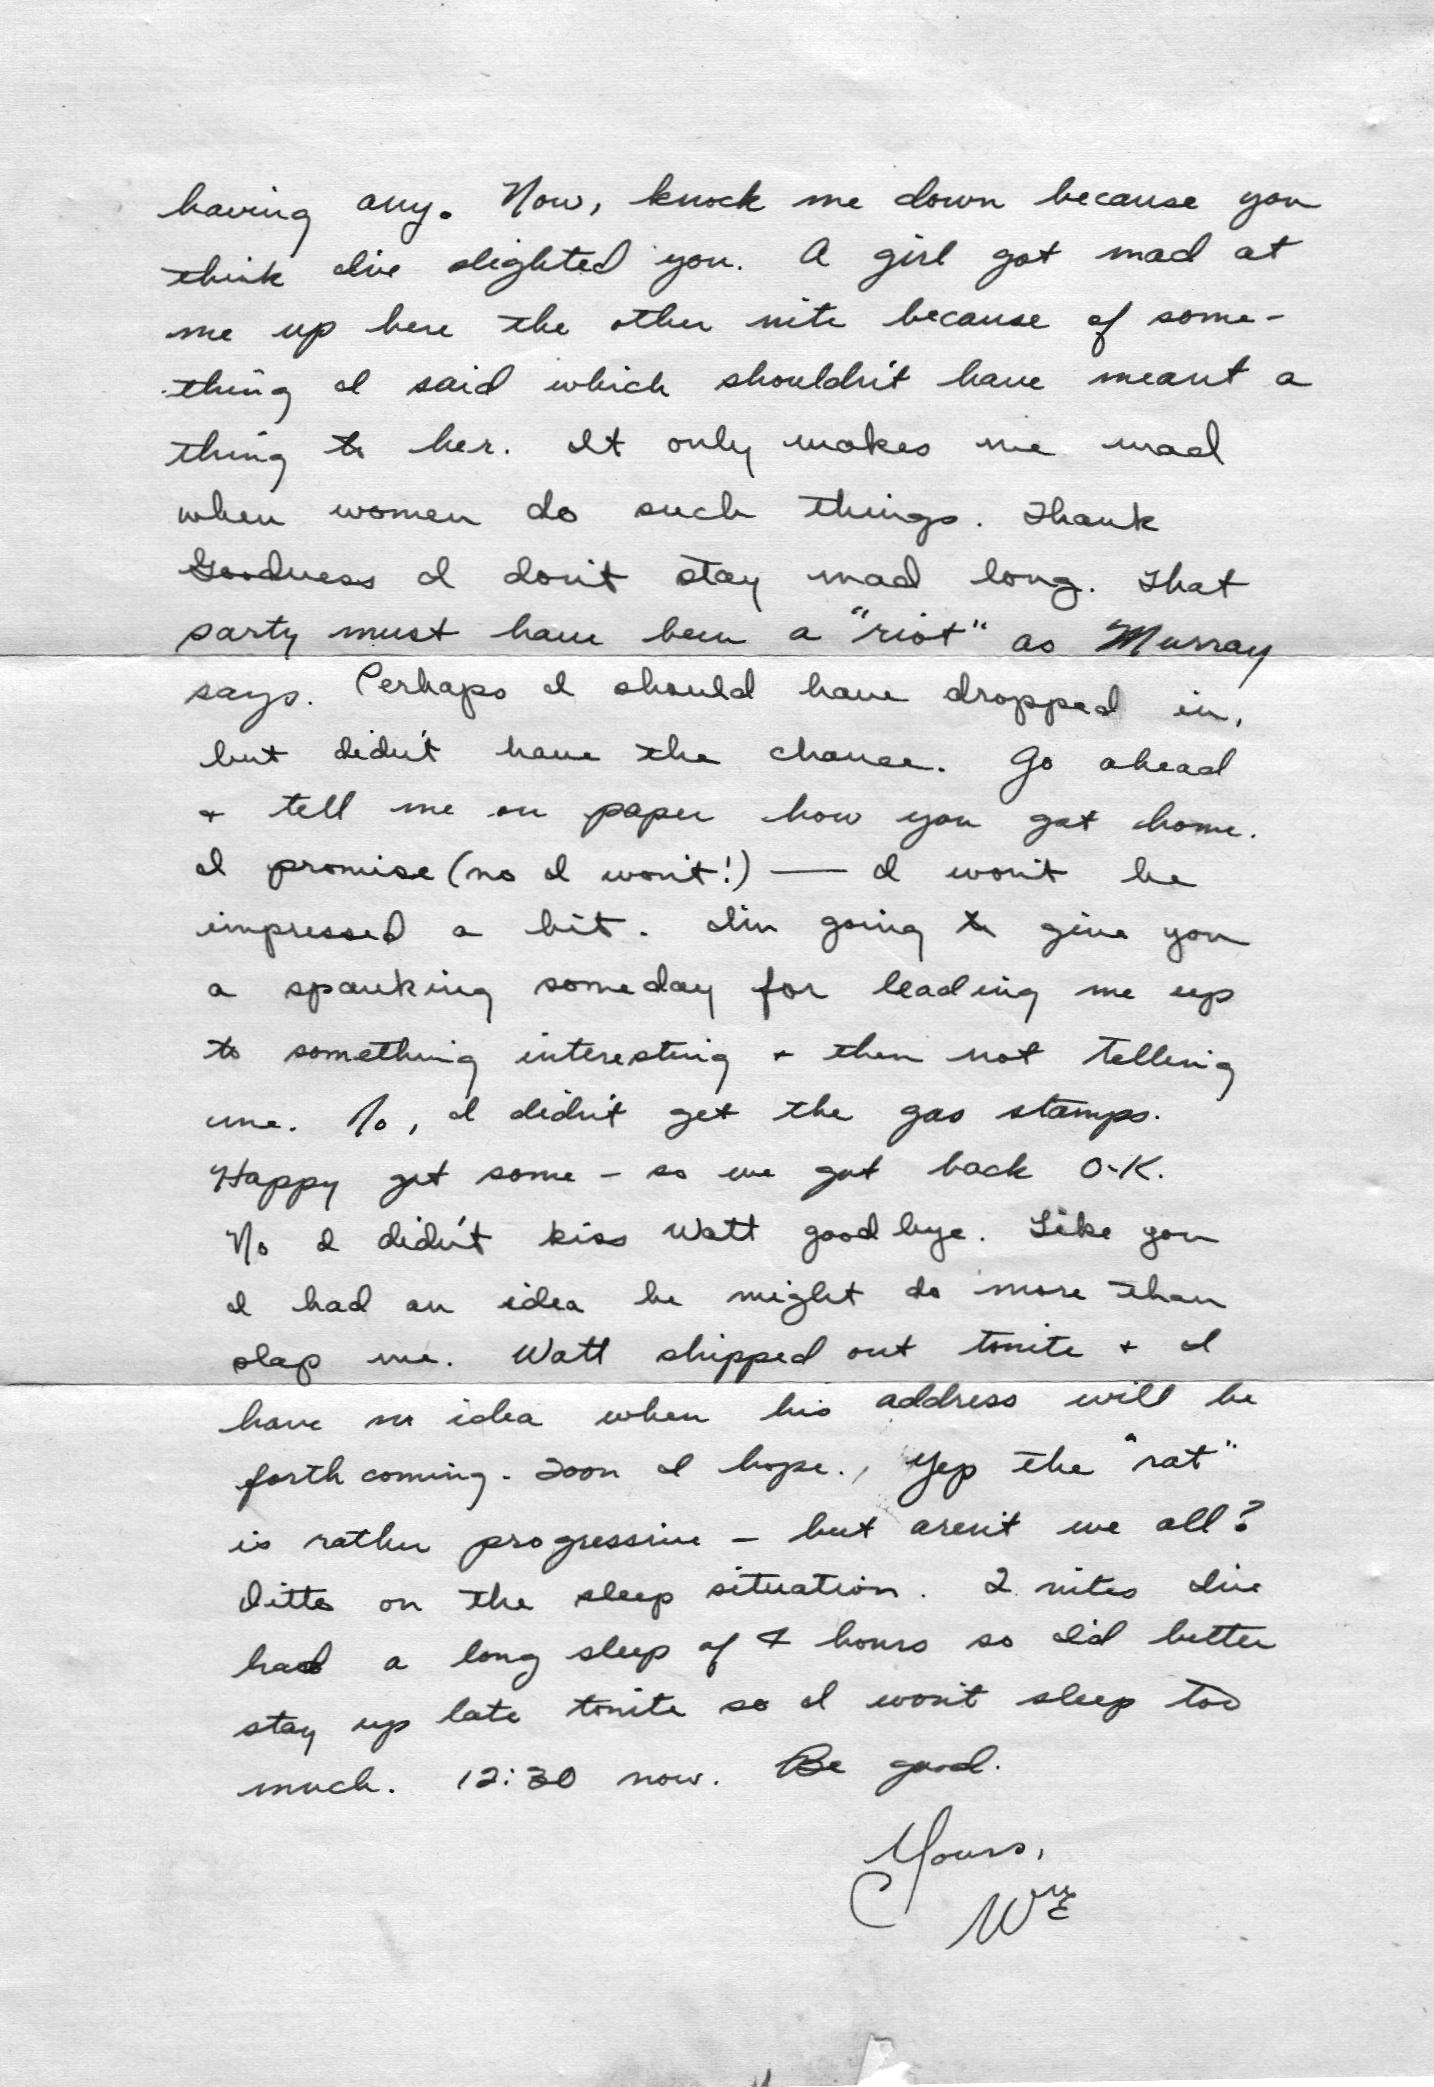 having any. Now, knock me down because you
think I've slighted you. A girl got mad at
me up here the other nite because of some-
thing I said which shouldn't have meant a
thing to her. It only makes me mad
when women do such things. Thank
Goodness I don't stay mad long. That
party must have been a "riot" as Murray
says. Perhaps I should have dropped in,
but didn't have the chance. Go ahead
+ tell me on paper how you got home.
I promise (no I won't!) — I won't be
impressed a bit. I'm going to give you
a spanking someday for leading me up
to something interesting + then not telling
me. No, I didn't get the gas stamps.
Happy got some – so we got back O.K.
No I didn't kiss Watt good bye. Like you
I had an idea he might do more than
slap me. Watt shipped out tonite + I
have no idea when his address will be
forth coming. Soon I hope. Yep the "rat"
is rather progressive – but aren't we all?
Ditto on the sleep situation. 2 nites I've
had a long sleep of 4 hours so I'd better
stay up late tonite so I won't sleep too
much. 12:30 now. Be good.
Yours,
Wm E